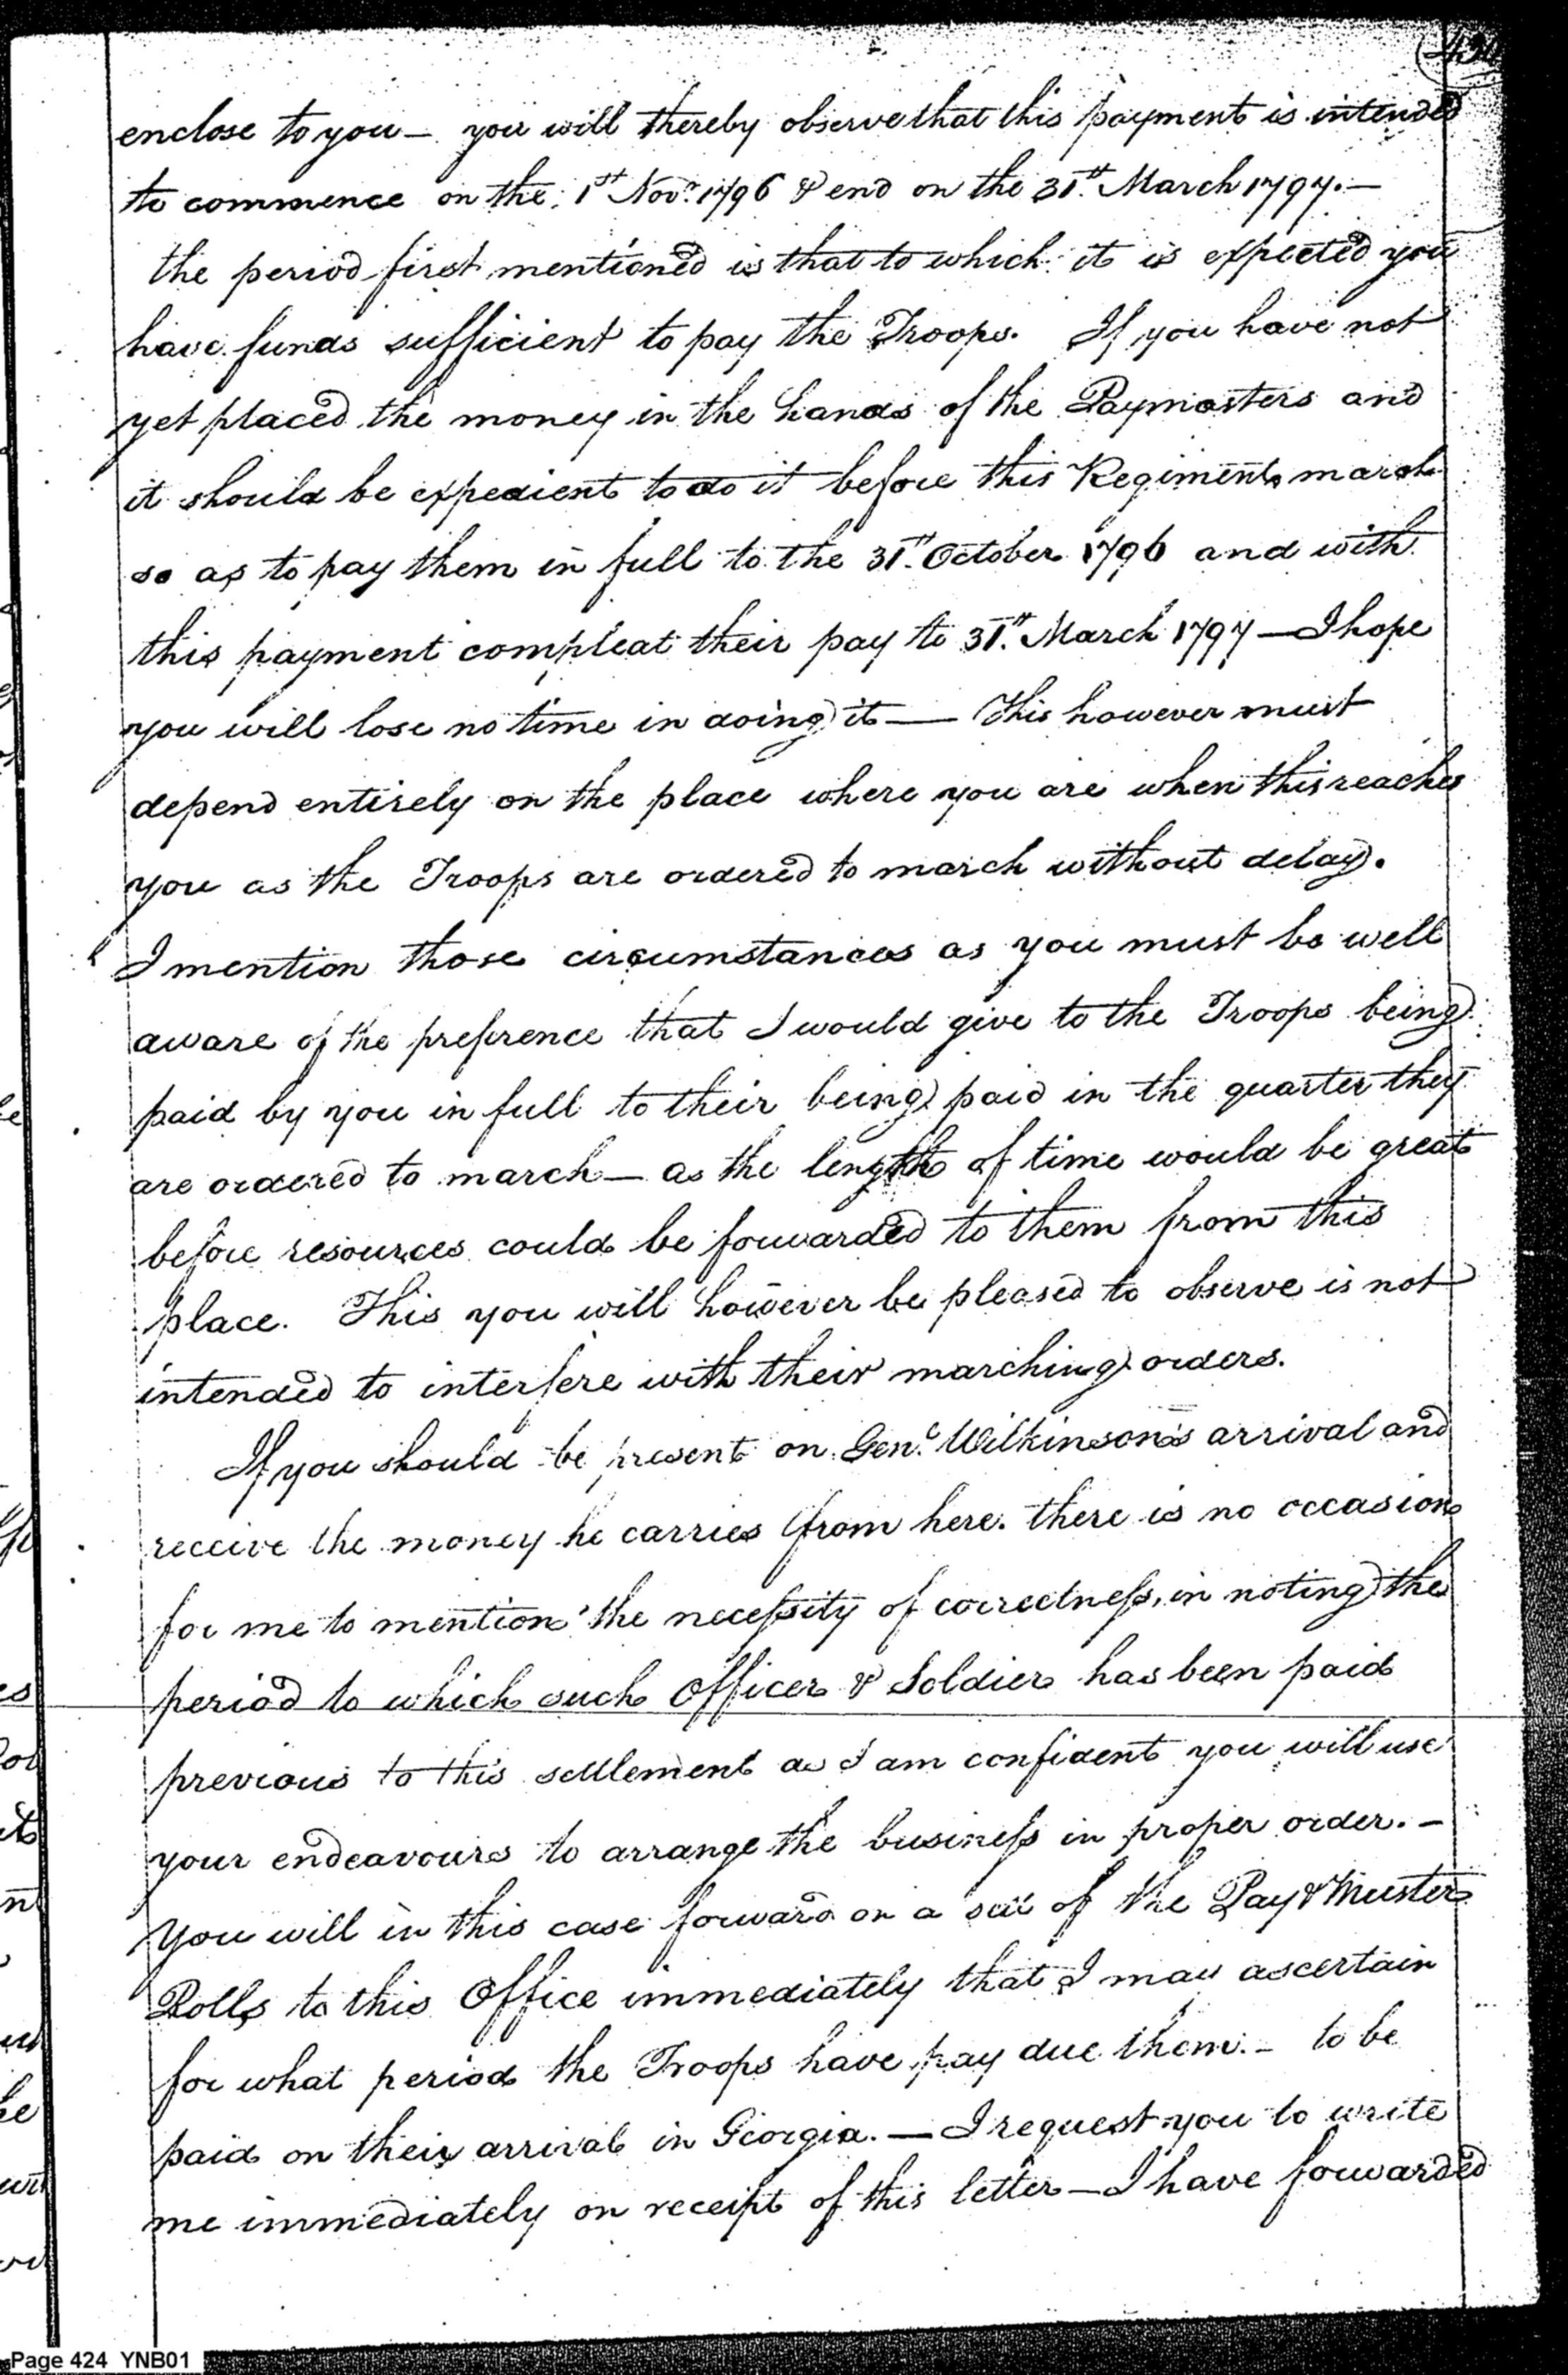 enclose to you — you will thereby observe that this payment is intended
to commence on the 1st Novr. 1796 & end on the 31st. March 1797. —
the period first mentioned is that to which it is expected you
have funds sufficient to pay the Troops. If you have not
yet placed the money in the hands of the Paymasters and
it should be expedient to do it before this Regiment march
so as to pay them in full to the 31st. October 1796 and with
this payment compleat their pay to 31st. March 1797 — I hope
you will lose no time in doing it — This however must
depend entirely on the place where you are when this reaches
you as the Troops are ordered to march without delay.
I mention those circumstances as you must be well
aware of the preference that I would give to the Troops being
paid by you in full to their being paid in the quarter they
are ordered to march — as the length of time would be great
before resources could be forwarded to them from this
place. This you will however be pleased to observe is not
intended to interfere with their marching orders.
If you should be present on Genl. Wilkinson's arrival and
receive the money he carries from here. there is no occasion
for me to mention the necessity of correctness, in noting the
period to which such Officer & Soldier has been paid
previous to this settlement as I am confident you will use
your endeavours to arrange the business in proper order. —
You will in this case forward on a set of the Pay & Muster
Rolls to this Office immediately that I may ascertain
for what period the Troops have pay due them. — to be
paid on their arrival in Georgia. — I request you to write
me immediately on receipt of this letter — I have forwarded
Page 424 YNB01